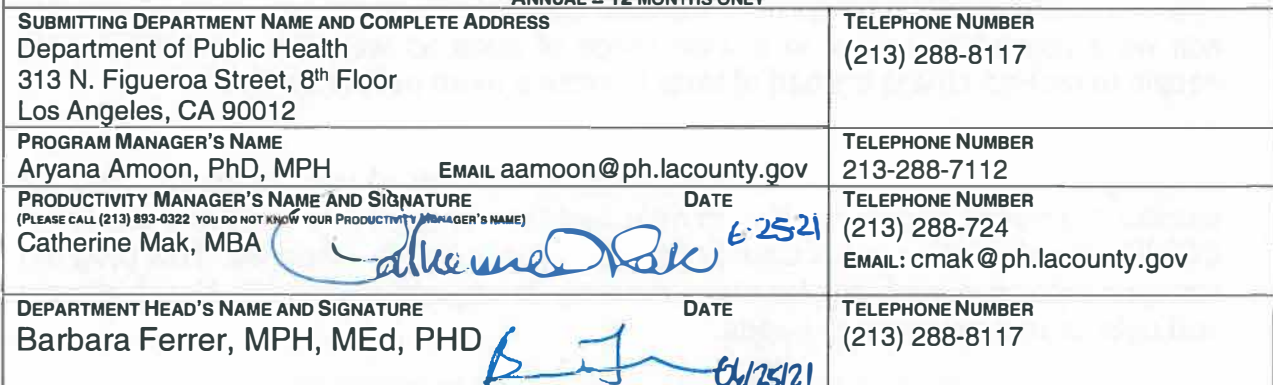 ANNUAL = 12 MONTHS ONLY
SUBMITTING DEPARTMENT NAME AND COMPLETE ADDRESS
Department of Public Health
313 N. Figueroa Street, 8th Floor
Los Angeles, CA 90012
TELEPHONE NUMBER
(213) 288-8117
PROGRAM MANAGER'S NAME
Aryana Amoon, PhD, MPH EMAIL aamoon@ph.lacounty.gov
TELEPHONE NUMBER
213-288-7112
PRODUCTIVITY MANAGER'S NAME AND SIGNATURE DATE
(PLEASE CALL (213) 893-0322 YOU DO NOT KNOW YOUR PRODUCTIVITY MANAGER'S NAME)
Catherine Mak, MBA Catherine Mak 6-25-21
TELEPHONE NUMBER
(213) 288-724
EMAIL: cmak@ph.lacounty.gov
DEPARTMENT HEAD'S NAME AND SIGNATURE DATE
Barbara Ferrer, MPH, MEd, PHD
06/25/21
TELEPHONE NUMBER
(213) 288-8117